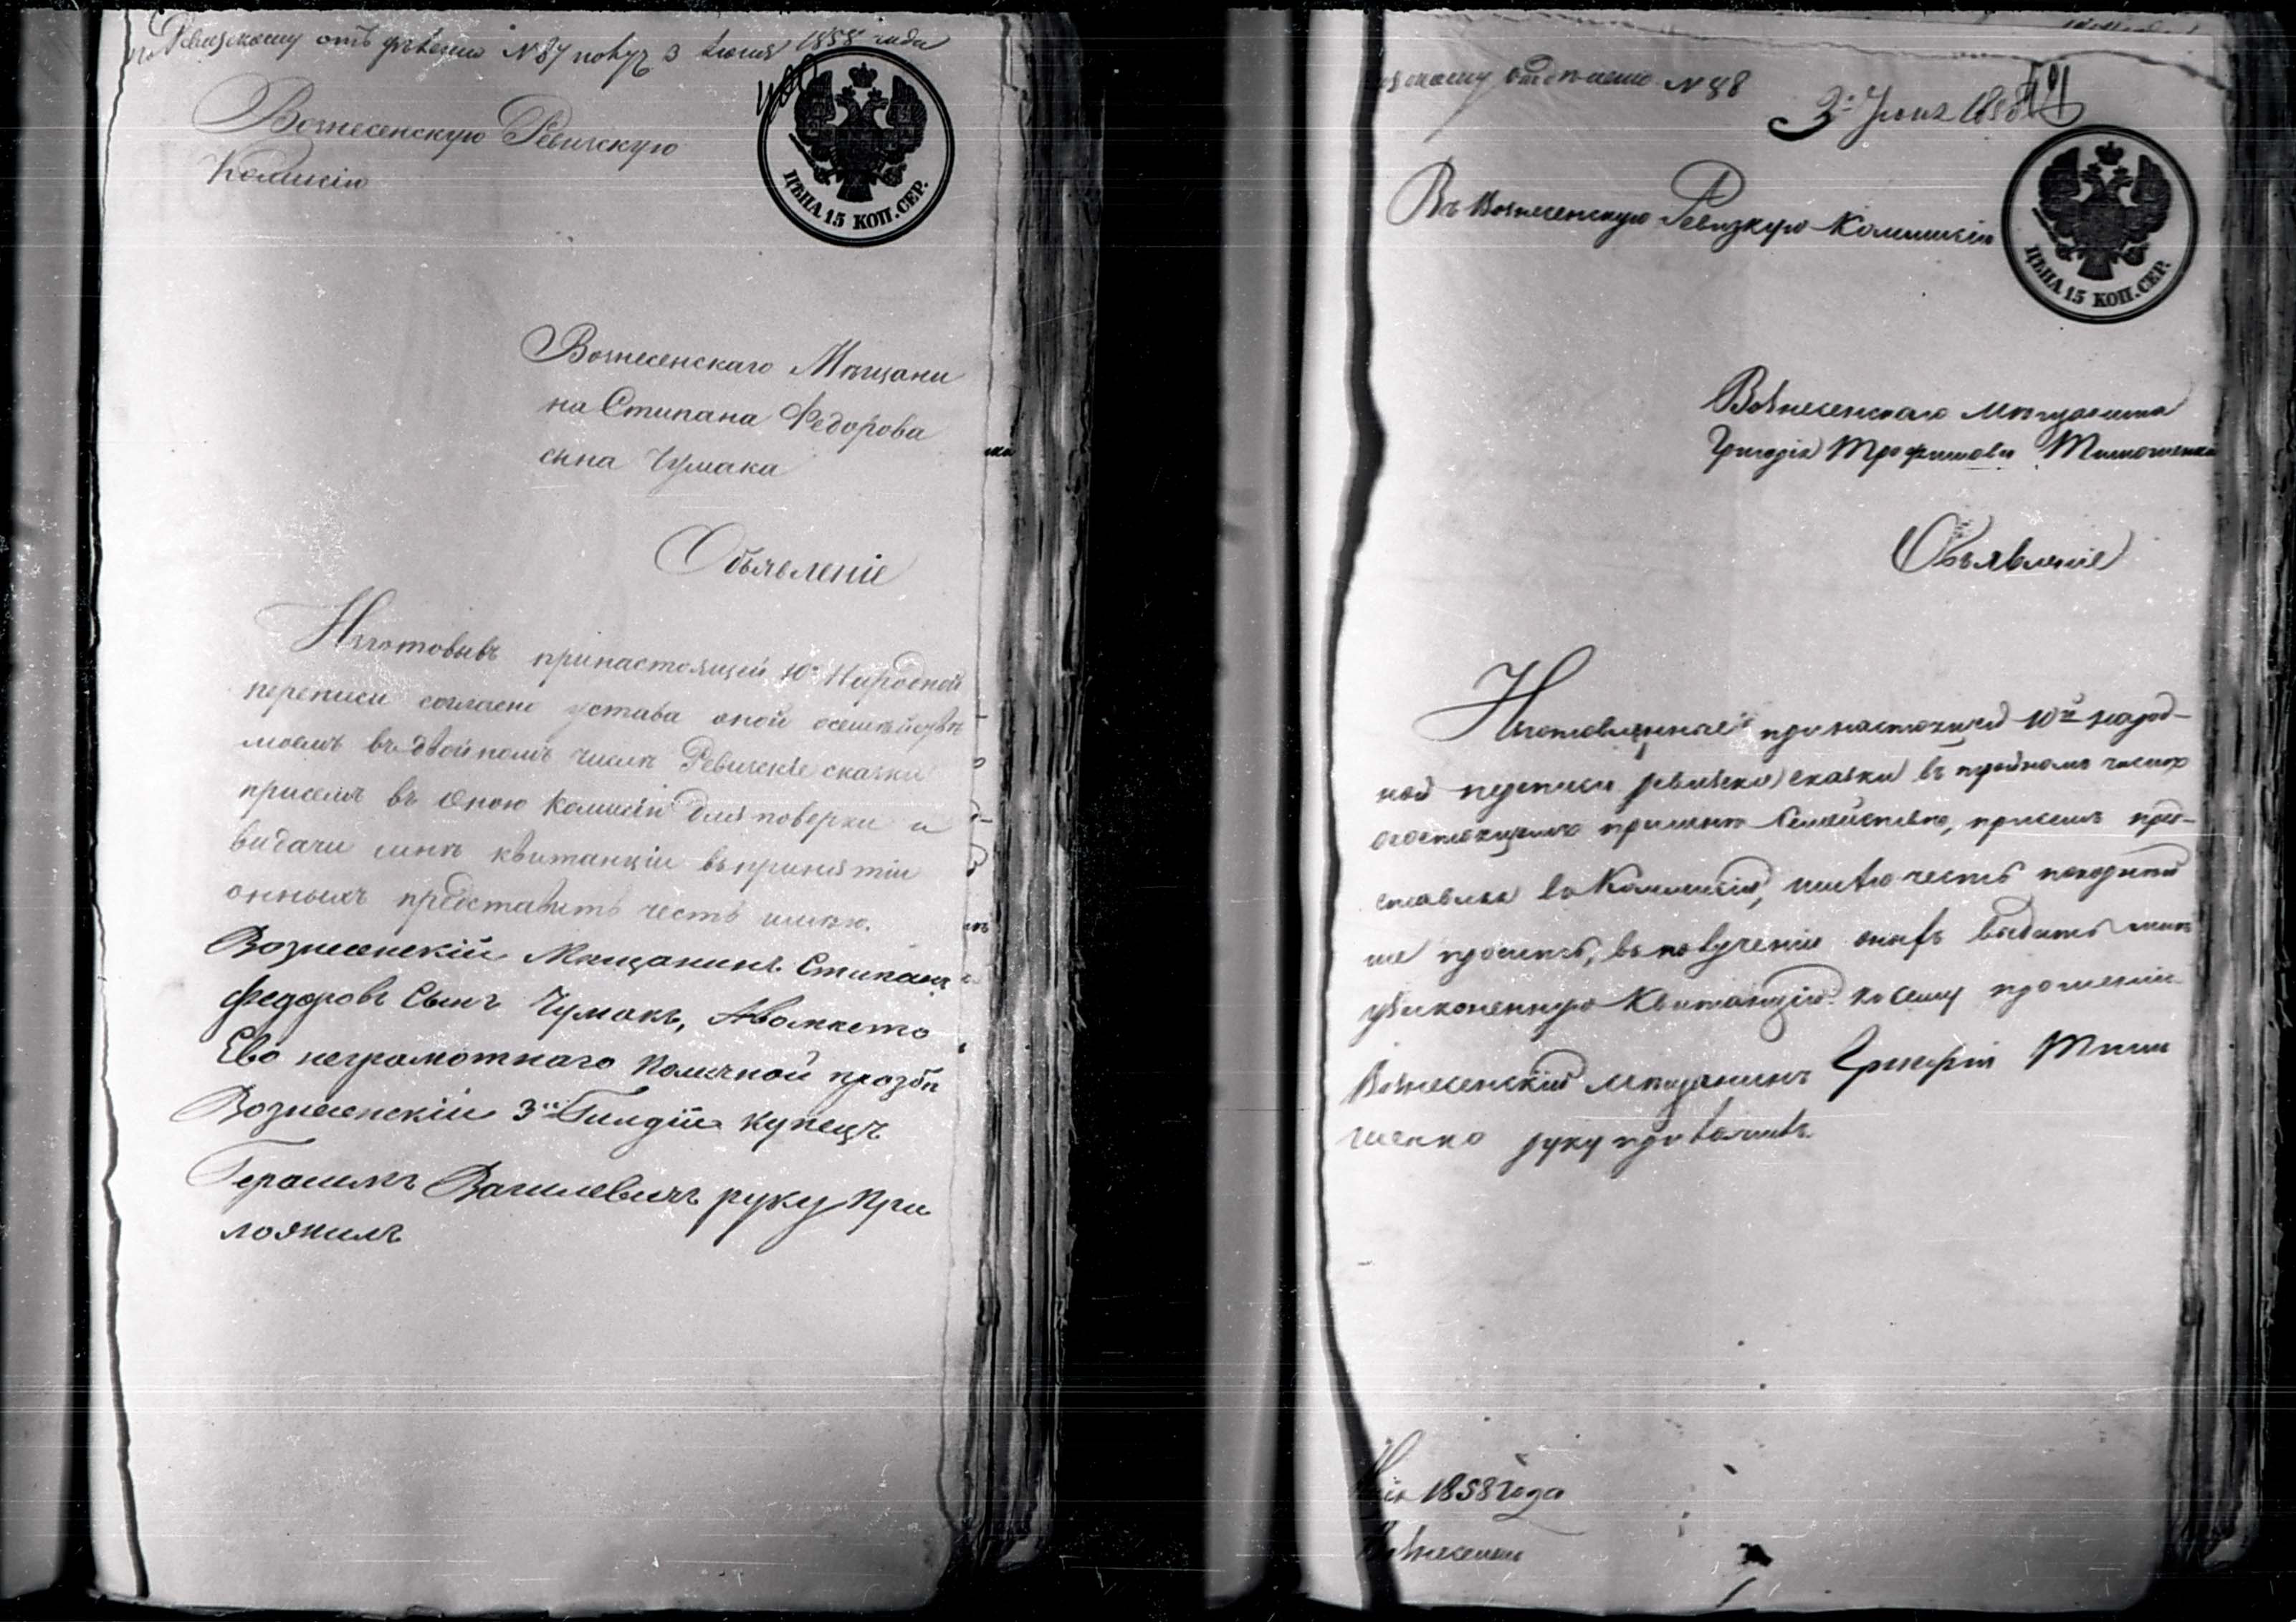 по Ревизскому отделению N 87 получ 3 Июня 1858 года
400
Вознесенскую Ревизскую
Комисію
ЦѢНА 15 КОП. СЕР.
Вознесенскаго Мѣщани
на Стипана Федорова
сына Чумака
Объявленіе
Изготовывъ принастоящей 10й Народной
переписи согласно устава оной осемействѣ
моемъ въ двойномъ числѣ Ревизскіе сказки
присемъ въ Оною Комисію для поверки и
видачи мнѣ квитанціи въпринятіи
онныхъ представить честь имѣю.
Вознесенскій Мещанинъ Стипанъ
Федоровъ Сынъ Чумакъ, Авомѣсто
Ево неграмотнаго Поличной прозби
Вознесенскій 3й Гилдіи купецъ
Герасимъ Василевичъ руку При
ложилъ
отделению N 88
3го Июня 1858
401
Въ Вознесенскую Ревизкую Коммисію
ЦѢНА 15 КОП. СЕР.
Вознесенскаго мѣщанина
Григорія Трофимова Тимошенка
Объявленіе
Изготовленные при настоящей 10й народ-
ной переписи ревизско сказки въ двойномъ числѣ
присемъ пред-
ставляя въ Коммисію, имѣю честь покорнѣй
ше просить, въ полученіи онихъ выдать мнѣ
узаконенную Квитанцію. Къ сему прошенію
Вознесенскій мѣщанинъ Григорій Тимо
шенко руку приложилъ
1858 года
Вознесенск